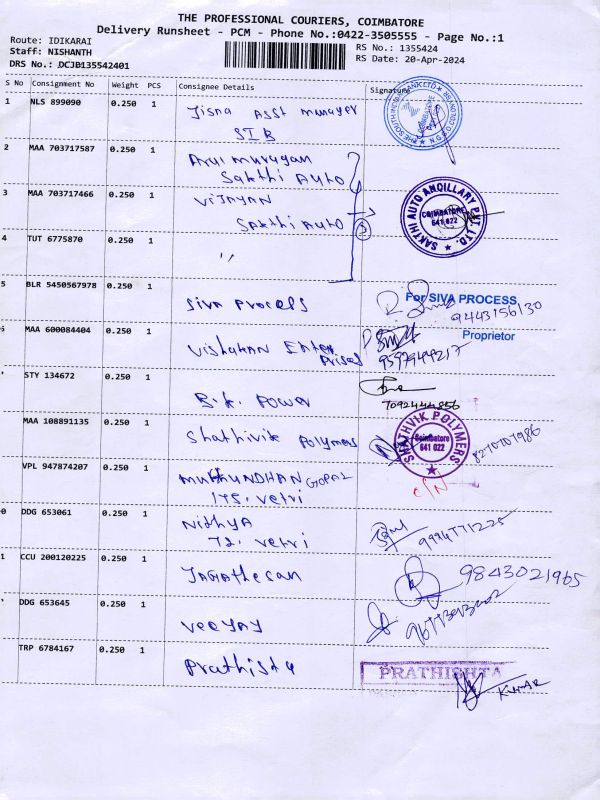 THE PROFESSIONAL COURIERS, COIMBATORE
Delivery Runsheet - PCM - Phone No.:0422-3505555 - Page No.:1
Route: IDIKARAI
Staff: NISHANTH
DRS No.: DCJB135542401
RS No.: 1355424
RS Date: 20-Apr-2024
S No Consignment No Weight PCS Consignee Details Signature
1 NLS 899090 0.250 1 Jisna Asst manager
SIB
2 MAA 703717587 0.250 1 Arul murugan
Sakthi Auto
3 MAA 703717466 0.250 1 VIJAYAN
Sakthi Auto
3
COIMBATORE
641 022
SAKTHI AUTO ANCILLARY PVT. LTD.
4 TUT 6775870 0.250 1 "
5 BLR 5450567978 0.250 1 Siva Process
For SIVA PROCESS
9443156130
Proprietor
MAA 600084404 0.250 1 Vishakan Enter
Prises
9597949217
STY 134672 0.250 1 S.K. Power
7092444856
MAA 108891135 0.250 1 Shathivik Polymers
SHATHVIK POLYMERS
Coimbatore
641 022
8270701986
C/N
VPL 947874207 0.250 1 MUKUNDHAN GOPAL
175. Vetri
0 DDG 653061 0.250 1 Nithya
72. Vetri
9994771225
1 CCU 200120225 0.250 1 JAGAthesan
9843021965
DDG 653645 0.250 1 Veejay
TRP 6784167 0.250 1 Prathista
PRATHISHTA
KUMAR